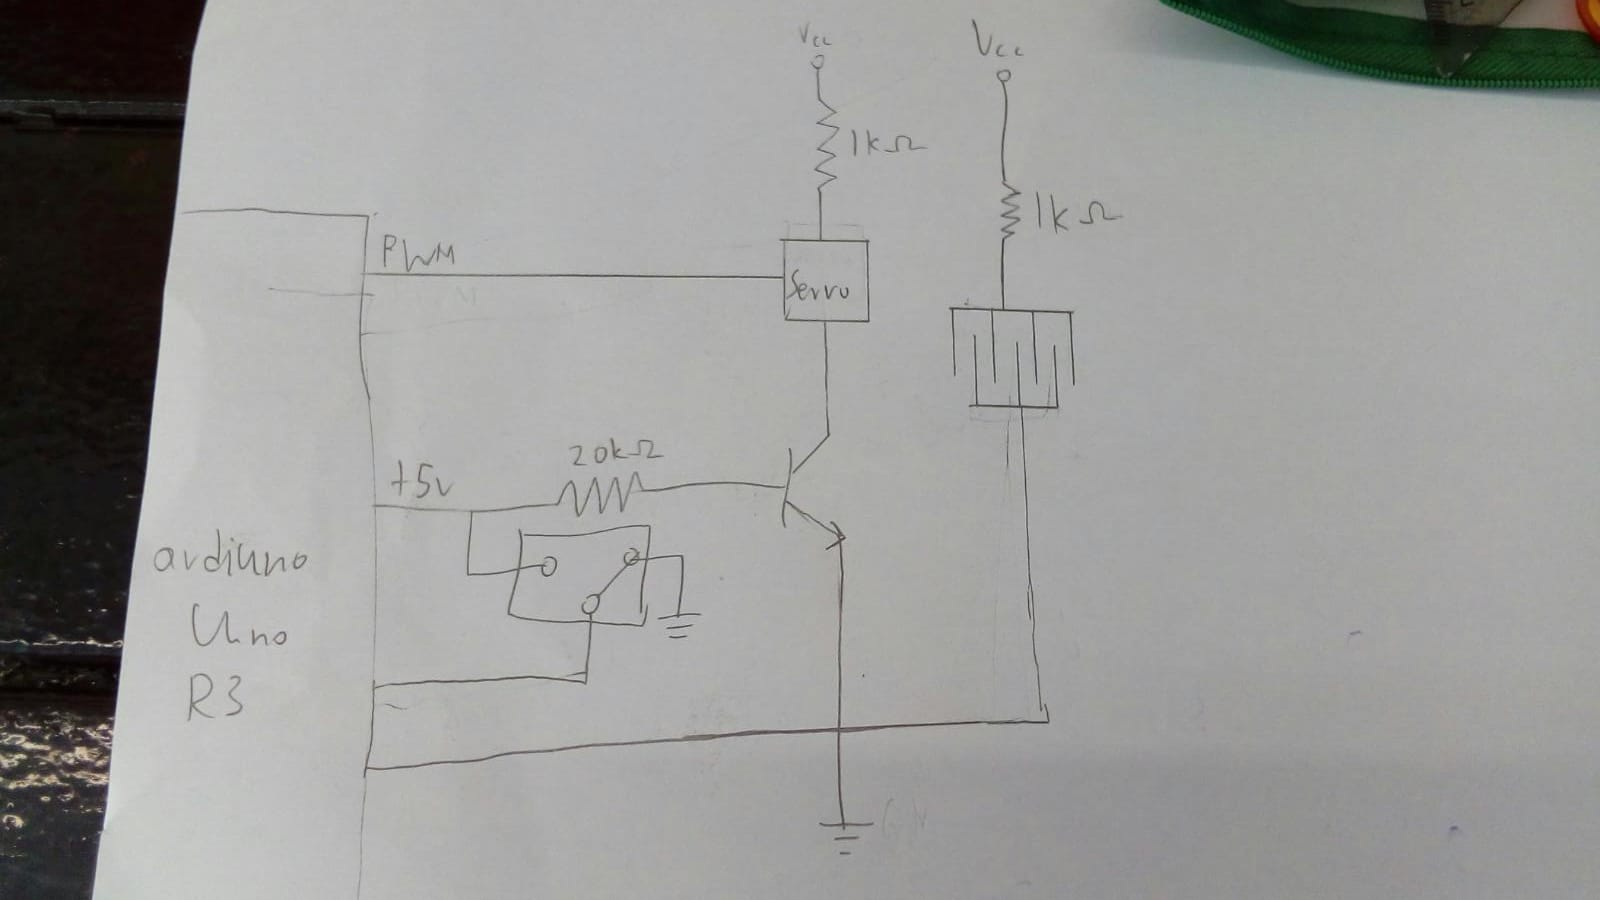 Vcc
Vcc
1kΩ
1kΩ
PWM
Servo
20kΩ
+5v
ardiuno
Uno
R3
GN